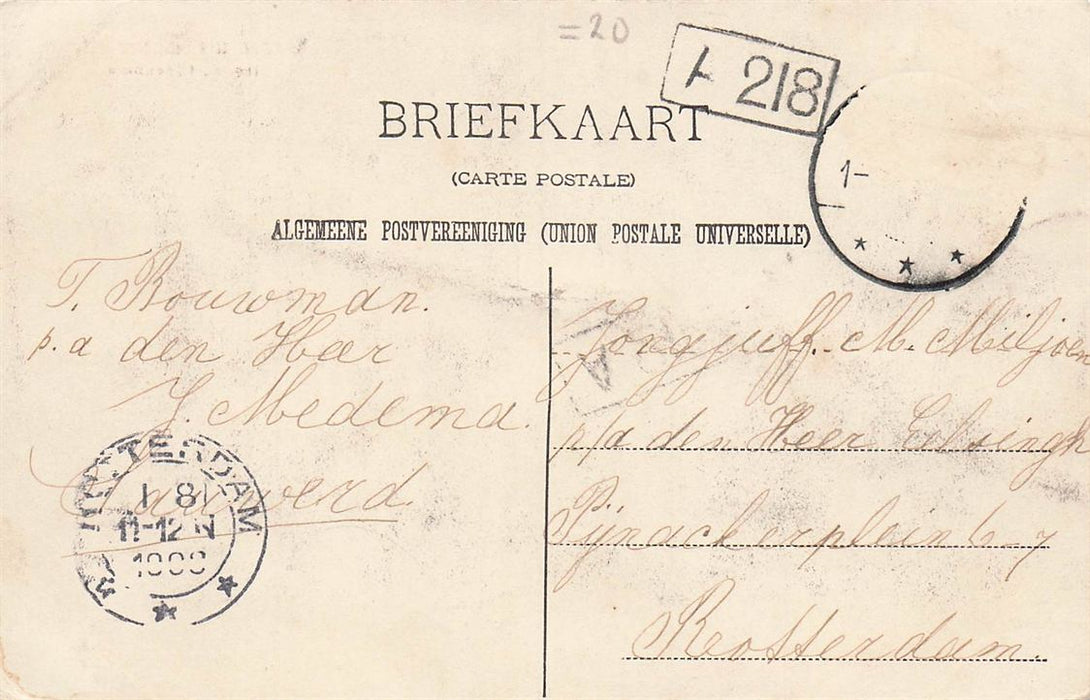 =20
A 218
BRIEFKAART
(CARTE POSTALE)
ALGEMEENE POSTVEREENIGING (UNION POSTALE UNIVERSELLE)
1-
T. Bouwman.
p. a den Heer
J. Medema.
TERDAM
1 8
11-12 N
Jongjuff. M. Miljoen
p/a den Heer
Pijnackerplein 6-7
Rotterdam.